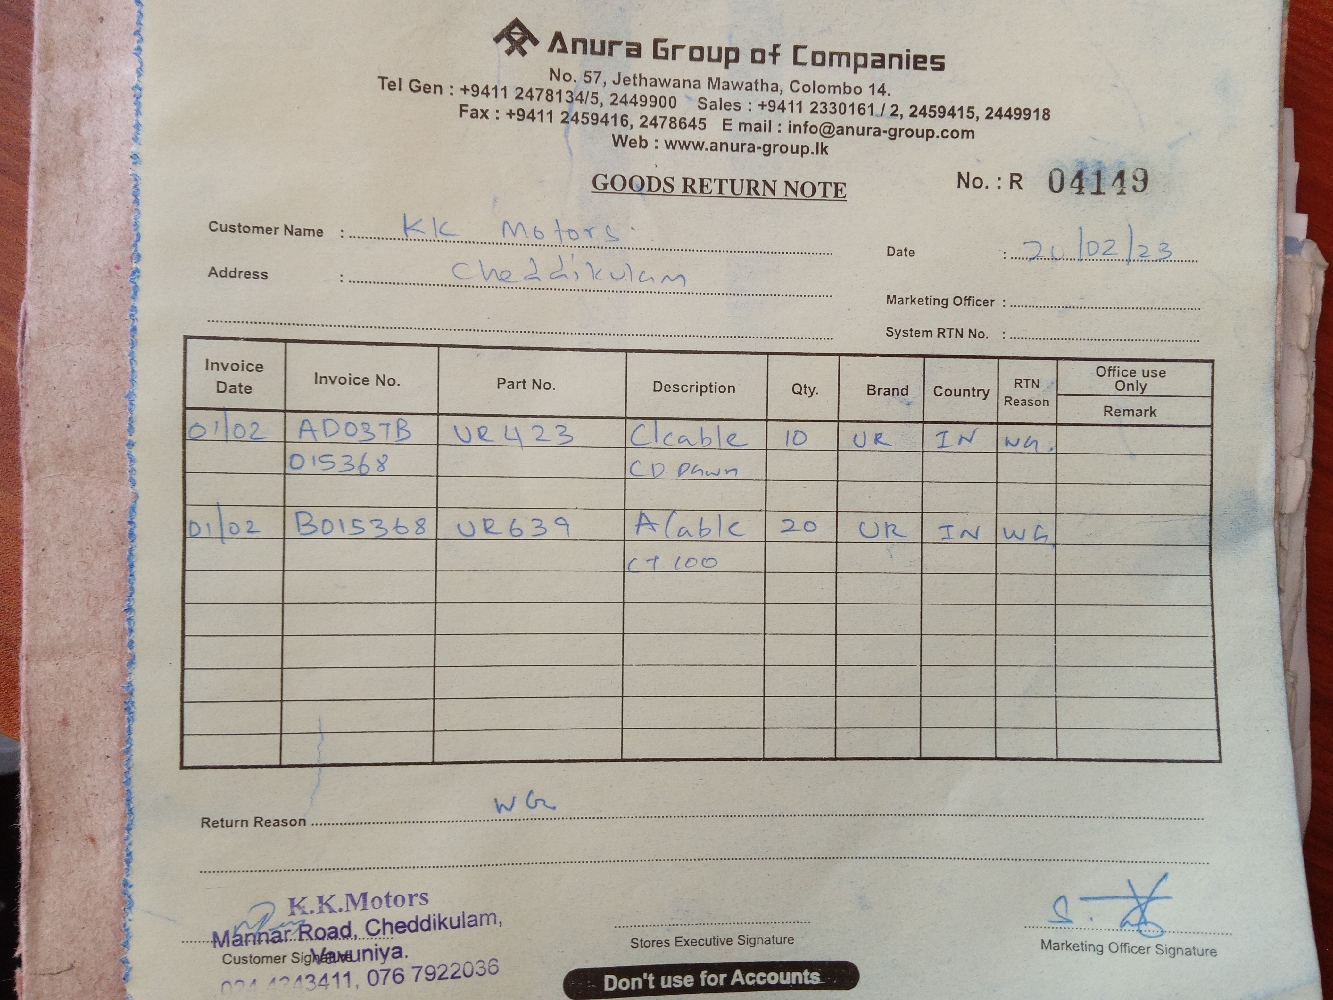 Anura Group of Companies
No. 57, Jethawana Mawatha, Colombo 14.
Tel Gen : +9411 2478134/5, 2449900 Sales : +9411 2330161 / 2, 2459415, 2449918
Fax : +9411 2459416, 2478645 E mail : info@anura-group.com
Web : www.anura-group.lk
GOODS RETURN NOTE
No. : R 04149
Customer Name : KK Motors
Date : /02/23
Address : Cheddikulam
Marketing Officer :
System RTN No. :
Invoice Date Invoice No. Part No. Description Qty. Brand Country RTN Reason Office use Only Remark
01/02 AD037B UR423 Clcable 10 UR IN WG.
015368 CD Dawn
01/02 B015368 UR639 A/cable 20 UR IN WG
CT 100
Return Reason WG
K.K.Motors
Mannar Road, Cheddikulam,
Vavuniya.
Customer Signature
4243411, 076 7922036
Stores Executive Signature
Marketing Officer Signature
Don't use for Accounts